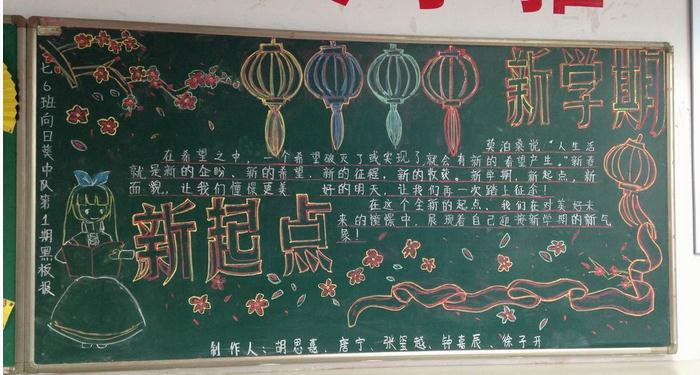 七6班向日葵中队第1期黑板报
新学期
莫泊桑说“人生活
在希望之中,一个希望破灭了或实现了就会有新的希望产生。”新春
就是新的企盼、新的希望、新的征程、新的收获。新学期,新起点,新
面貌,让我们憧憬更美好的明天,让我们再一次踏上征余!
在这个全新的起点、我们在对美好未
来的憧憬中,展现着自己迎接新学期的新气
象!
新起点
制作人:胡思嘉、唐宁、张玺越、钟嘉辰、徐子开